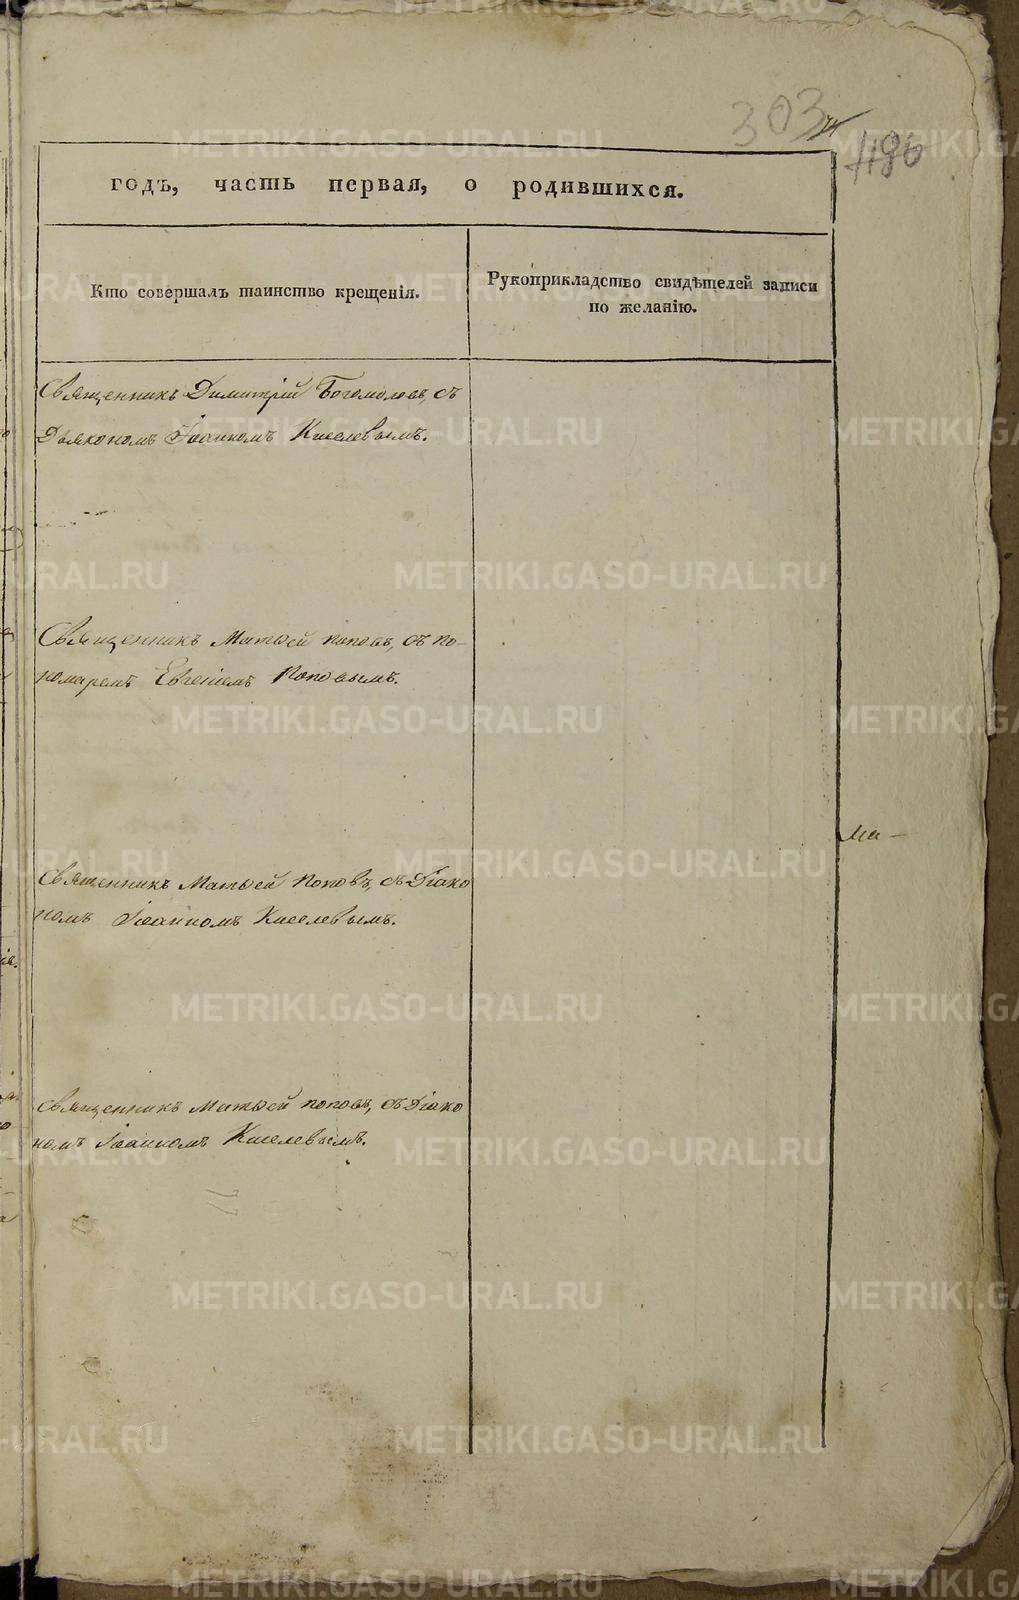 303
1186
годъ, часть первая, о родившихся.
Кто совершалъ таинство крещенія.
Рукоприкладство свидѣтелей записи
по желанію.
Священникъ Димитрій Богомоловъ, съ
Дьякономъ Іоанномъ Киселевымъ.
Священникъ Матѳей Поповъ, съ по-
номаремъ Евгеніемъ Поповымъ.
Священникъ Матѳей Поповъ, съ Діако
номъ Іоанномъ Киселевымъ.
Священникъ Матѳей Поповъ, съ Діако
номъ Іоанномъ Киселевымъ.
Ма-
METRIKI.GASO-URAL.RU